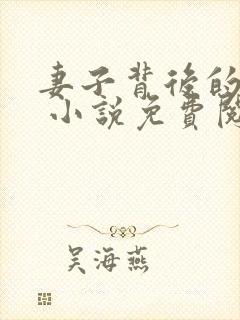 妻子背後的
小說免費閱
吳海燕